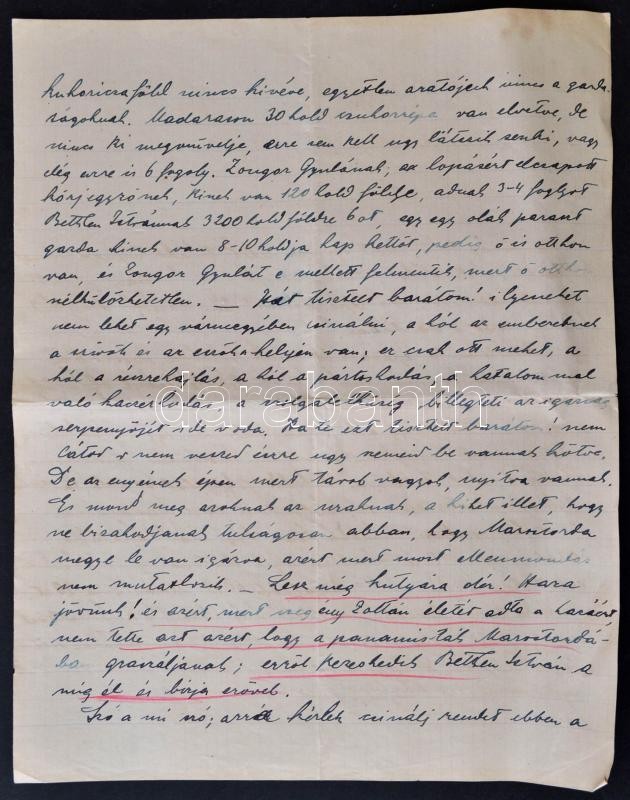 kukoriczaföld nincs kivéve, egyetlen aratójegy nincs a gazda-
ságoknak. Madarason 30 hold czukorrépa van elvetve, de
nincs ki megművelje, erre nem kell ugy látszik senki, vagy
elég erre is 6 fogoly. Zongor Gyulának, az lopásért elcsapott
körjegyzőnek, kinek van 120 hold földje, adnak 3-4 foglyot
Bethlen Istvánnak 3200 hold földre 6 ot, egy egy oláh paraszt
gazda kinek van 8-10 holdja kap kettőt, pedig ő is otthon
van, és Zongor Gyulát e mellett felmentik, mert ő otthon
nélkülözhetetlen. — Hát tisztelt barátom! ilyeneket
nem lehet egy vármegyében csinálni, a hól az embereknek
a szivök és az eszök helyén van; ez csak ott mehet, a
hól a részrehajlás, a hól a pártoskodás, a hatalommal
való kaczérkodás, a szolgalelküség billegteti az igazság
serpenyőjét ide oda. Ha te ezt tisztelt barátom! nem
látod s nem veszed észre ugy szemeid be vannak kötve.
De az enyéimek épen mert távol vagyok, nyitva vannak.
És mond meg azoknak az uraknak, a kiket illet, hogy
ne bizakodjanak tulságosan abban, hogy Marostorda
megye le van igázva, azért mert most ellenmondás
nem mutatkozik. — Lesz még kutyára dér! Haza
jövünk! és azért, mert szegény Zoltán életét adta a hazáért,
nem tette azt azért, hogy a panamisták Marostordá-
ba grasszáljanak; erről kezeskedik Bethlen István a
mig él és birja erővel.
Szó a mi szó; arra kérlek csinálj rendet ebben a
darabanth